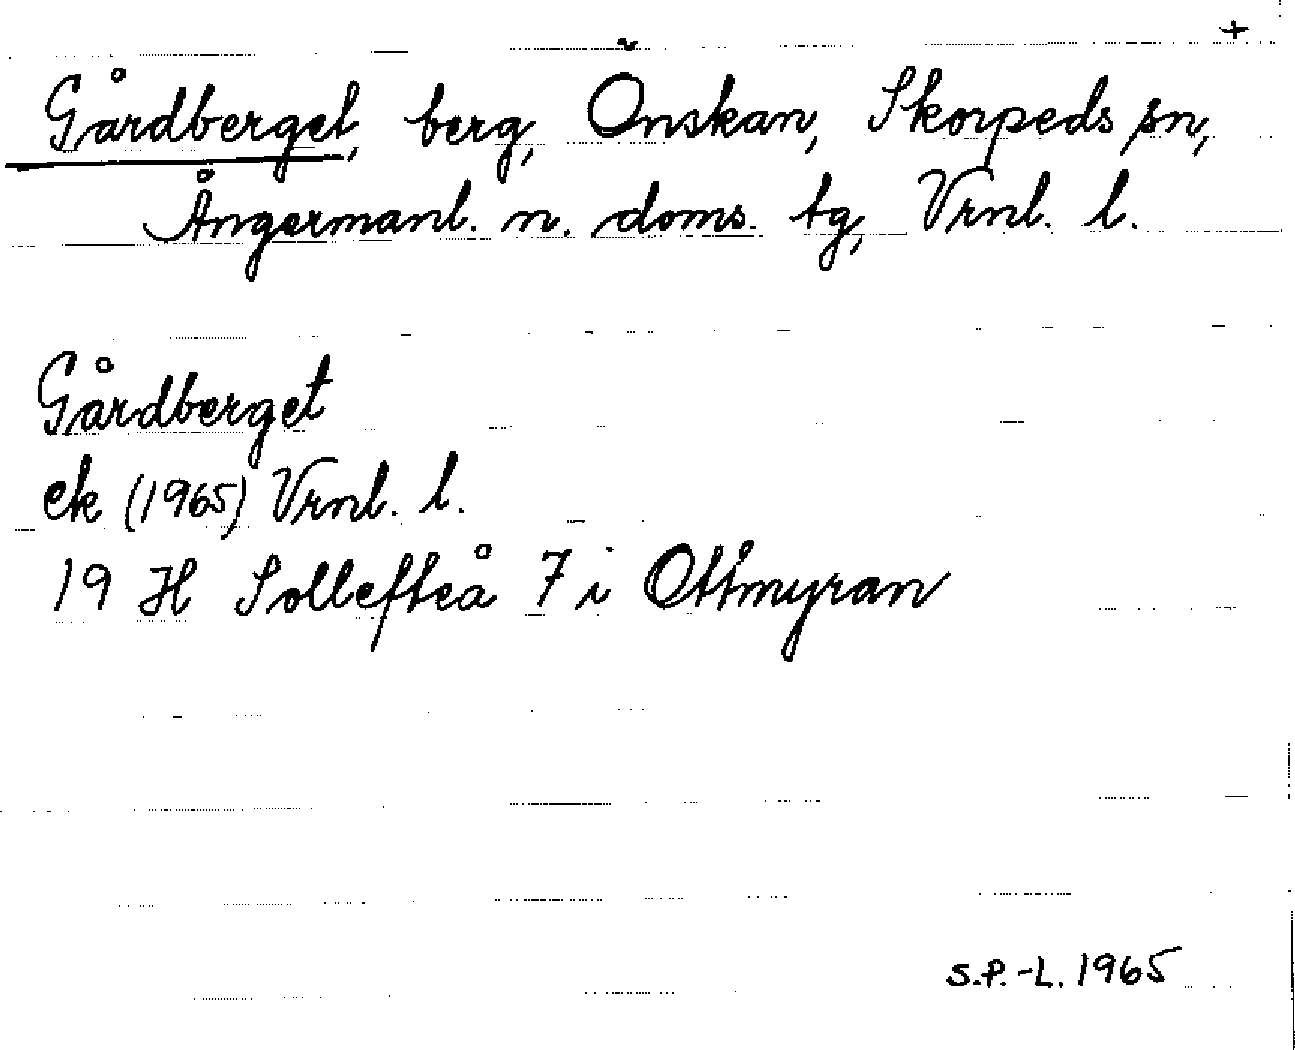 +
Gårdberget, berg, Önskan, Skorpeds sn,
Ångermanl. n. doms. tg, Vrnl. l.
Gårdberget
ek (1965) Vrnl. l.
19 H Sollefteå 7 i Ottmyran
S.P.-L. 1965